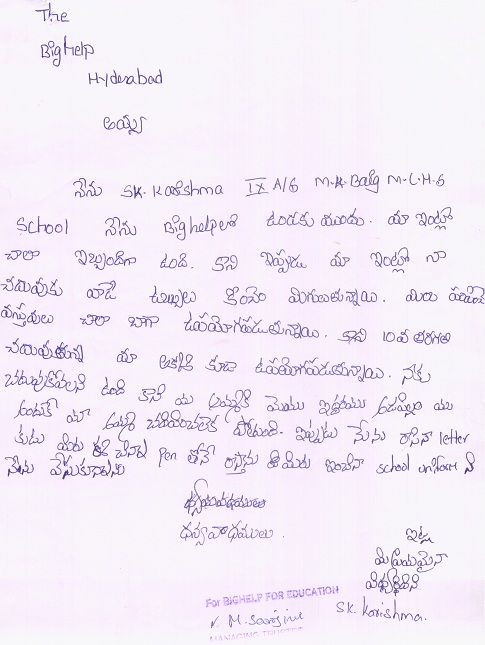 The
Big help
Hyderabad
అయ్యా
నేను SK. Karishma IX A/6 M.K. Baig M.C.H.S
school నేను Bighelpలో ఉండకు ముందు. మా ఇంట్లో
చాలా ఇబ్బందిగా ఉండె. కాని ఇప్పుడు మా ఇంట్లో నా
చదువుకు వాడే డబ్బులు కొంచెం మిగులుతున్నాయి. మీరు పంపించే
వస్తువులు చాలా బాగా ఉపయోగపడుతున్నాయి. 10వ తరగతి
చదువుతున్న మా అక్కకి కూడా ఉపయోగపడుతున్నాయి. నాకు
చదువుకోవాలని ఉంది కానీ మా అమ్మకి మేము ఇద్దరము ఆడపిల్లలం
అందుకే మా అమ్మ చదివించలేక పోతుంది. ఇప్పుడు నేను రాసిన letter
కుడు మీరు ఇచ్చిన Pen తోనే రాస్తాను మీరు ఇచ్చిన school uniform నే
నేను వేసుకుంటాను
ధన్యవాధములు.
ఇట్లు
మీ ప్రియమైన
విద్యార్థిని
SK. Karishma.
For BIGHELP FOR EDUCATION
MANAGING TRUSTEE